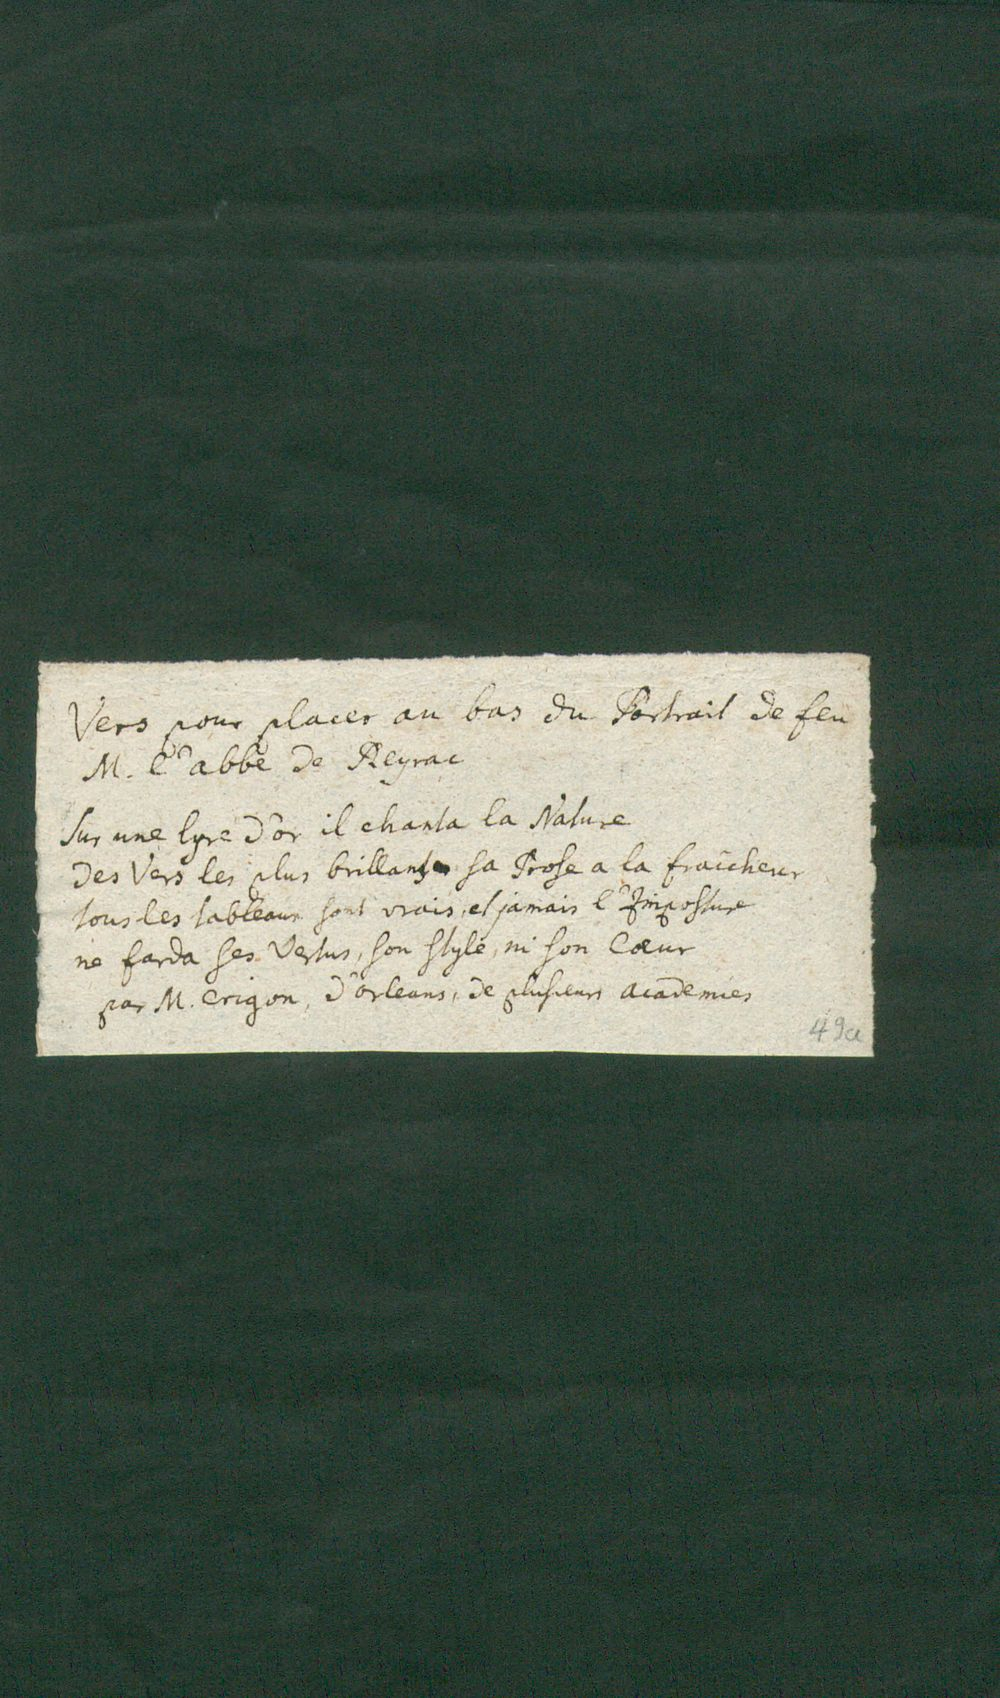 Vers pour placer au bas du Portrait de feu
M. l'abbé de Reyrac
Sur une lyre d'or il chanta la Nature
Des Vers les plus brillants sa Prose a la fraicheur
tous les tableaux sont vrais, et jamais l'Imposture
ne farda ses Vertus, son style, ni son Cœur
par M. Crignon, d'orleans, de plusieurs academies
49a